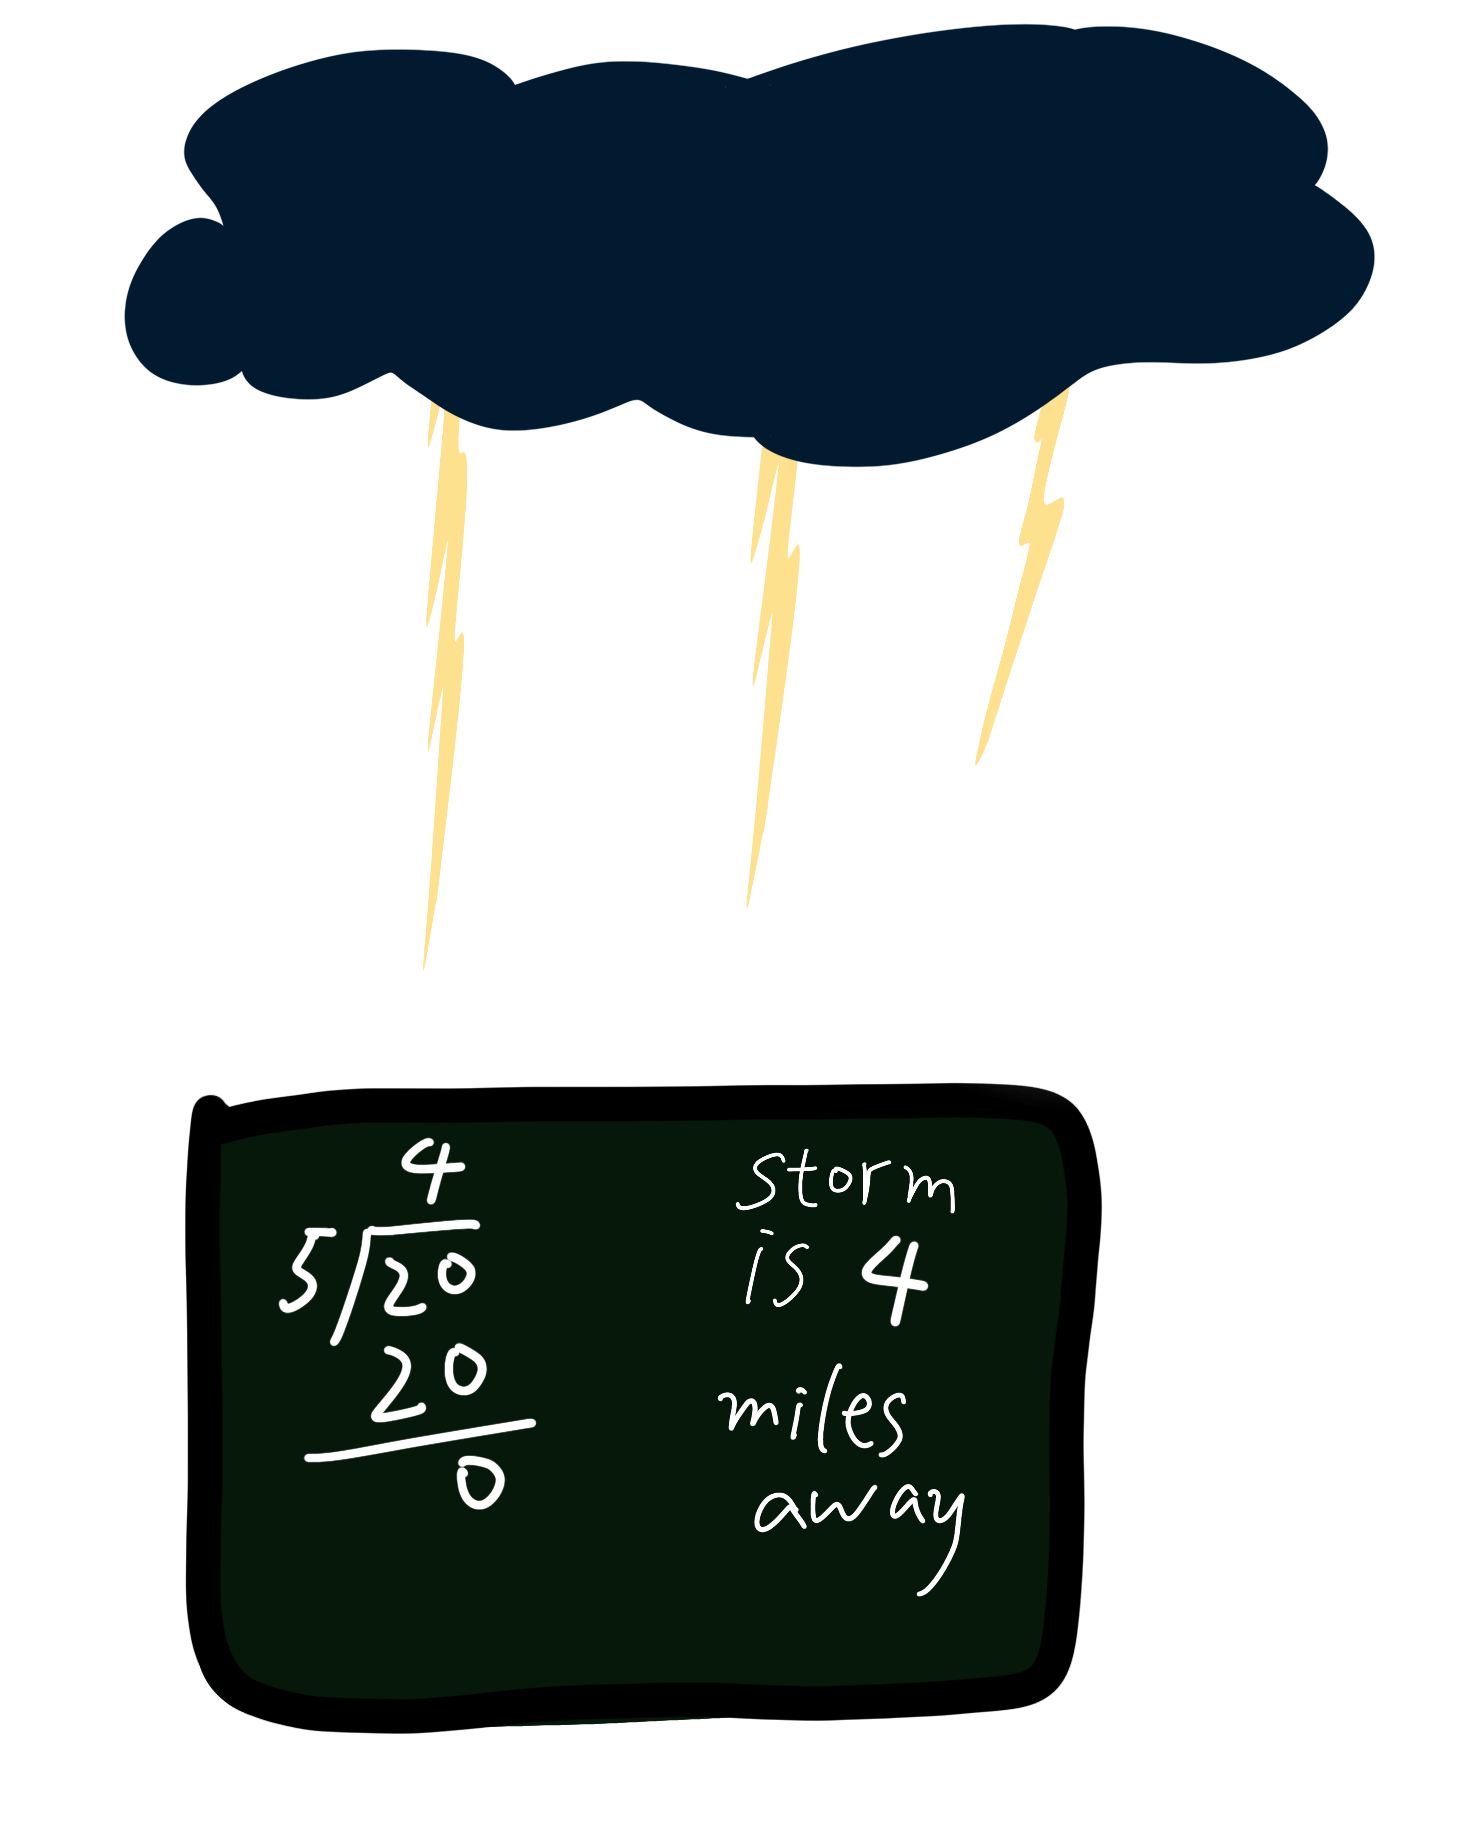 4
5/20
20
0
Storm
is 4
miles
away